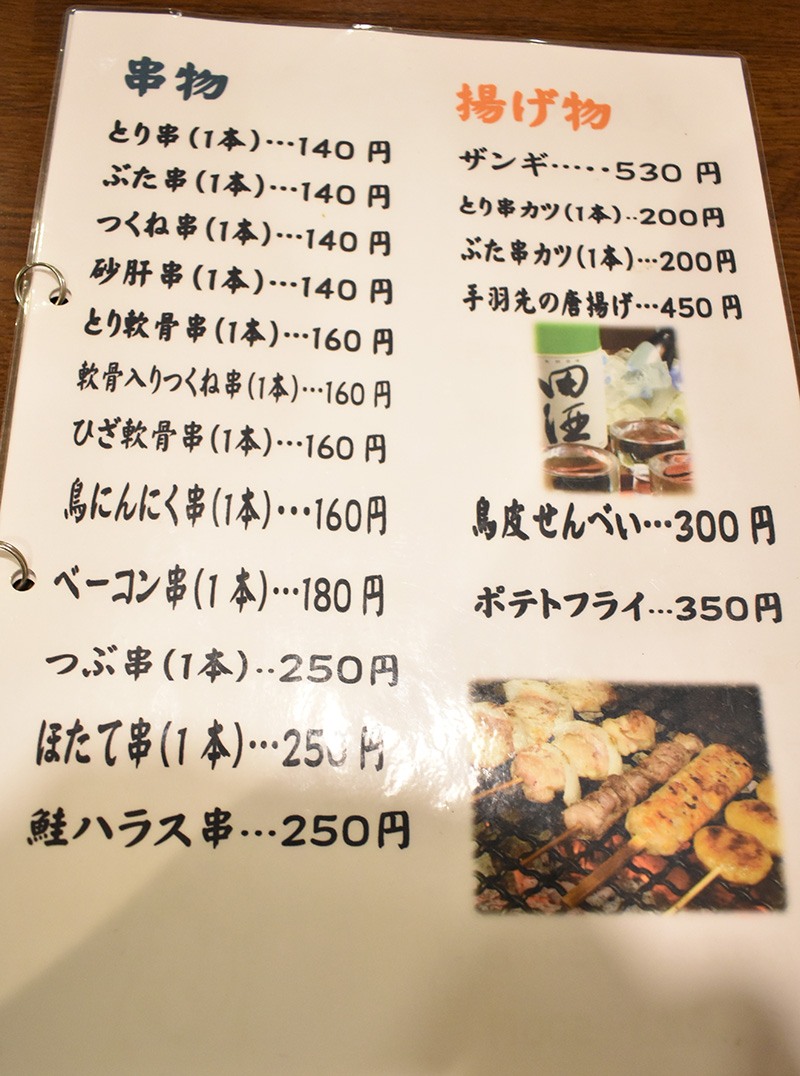 串物
とり串(1本)…140円
ぶた串(1本)…140円
つくね串(1本)…140円
砂肝串(1本)…140円
とり軟骨串(1本)…160円
軟骨入りつくね串(1本)…160円
ひざ軟骨串(1本)…160円
鳥にんにく串(1本)…160円
ベーコン串(1本)…180円
つぶ串(1本)‥250円
ほたて串(1本)…250円
鮭ハラス串…250円
揚げ物
ザンギ‥‥‥530円
とり串カツ(1本)‥200円
ぶた串カツ(1本)…200円
手羽先の唐揚げ…450円
田酒
鳥皮せんべい…300円
ポテトフライ…350円